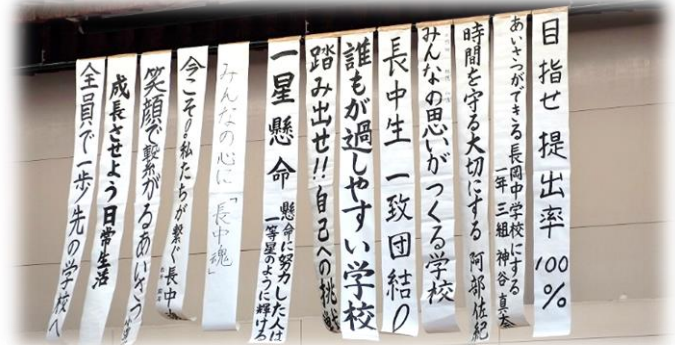 目指せ 提出率 100%
あいさつができる長岡中学校にする
一年 三組 神谷 真
時間を守る大切にする 阿部 佐紀
みんなの思いがつくる学校
長中生 一致団結
誰もが過しやすい学校
踏み出せ!!自己への挑戦
一星懸命
懸命に努力した人は
一等星のように輝ける
みんなの心に「長中魂」
今こそ!私たちが繋ぐ長中
笑顔で繋がるあいさつ
成長させよう日常生活
全員で一歩先の学校へ